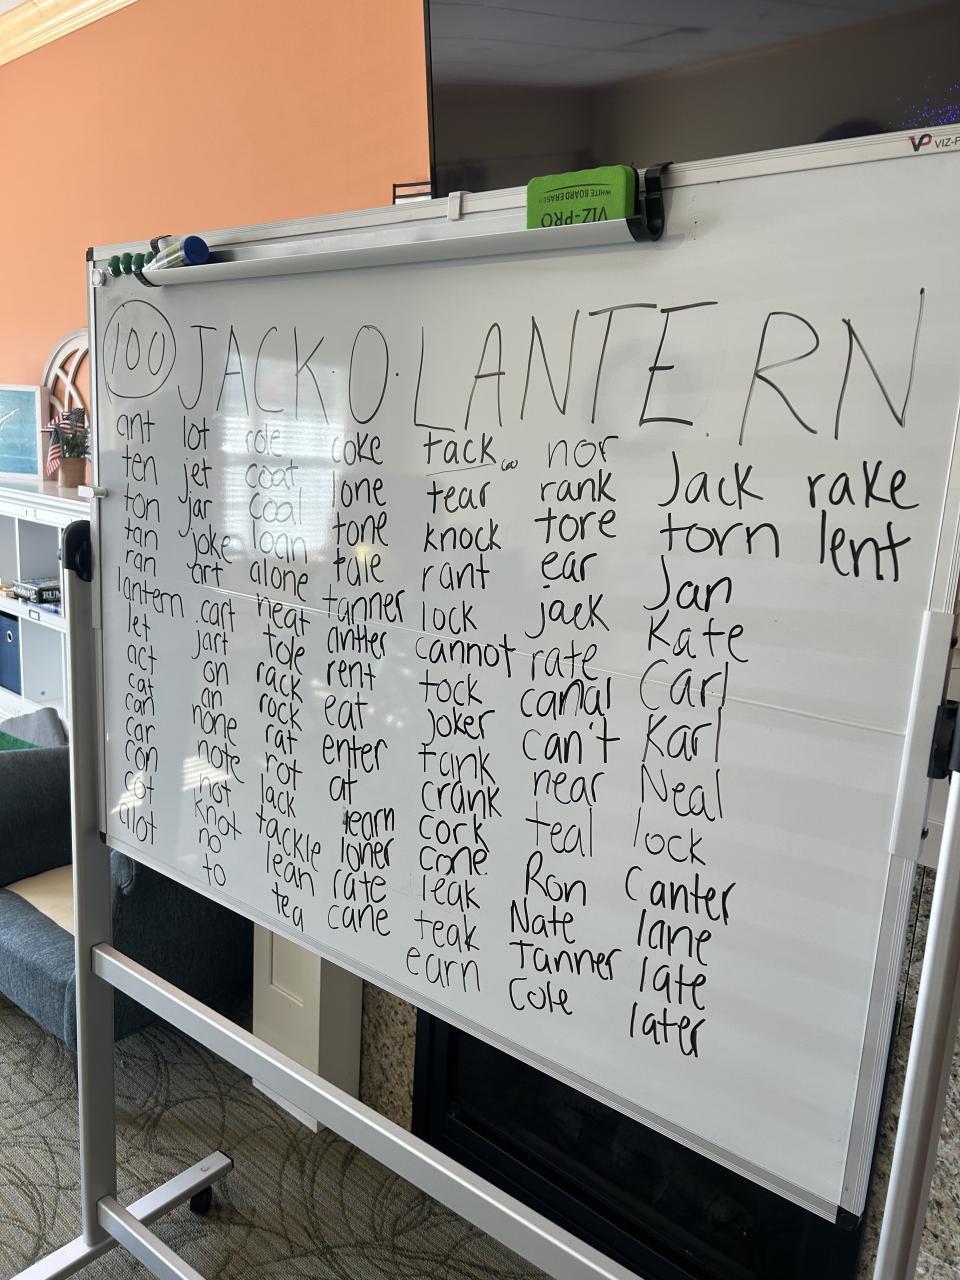 VIZ-P
WHITE BOARD ERASER
VIZ-PRO
100 JACK·O·LANTE.RN
ant
ten
ton
tan
ran
lantern
let
act
cat
can
car
con
cot
alot
lot
jet
jar
joke
art
cart
jart
on
an
none
note
not
knot
no
to
role
coat
coal
loan
alone
neat
tole
rack
rock
rat
rot
lack
tackle
lean
tea
coke
lone
tone
tale
tanner
antler
rent
eat
enter
at
learn
loner
rate
cane
tack 60
tear
knock
rant
lock
cannot
tock
joker
tank
crank
cork
cone
leak
teak
earn
nor
rank
tore
ear
jack
rate
canal
can't
near
teal
Ron
Nate
Tanner
Cole
Jack
torn
Jan
Kate
Carl
Karl
Neal
lock
Canter
lane
late
later
rake
lent